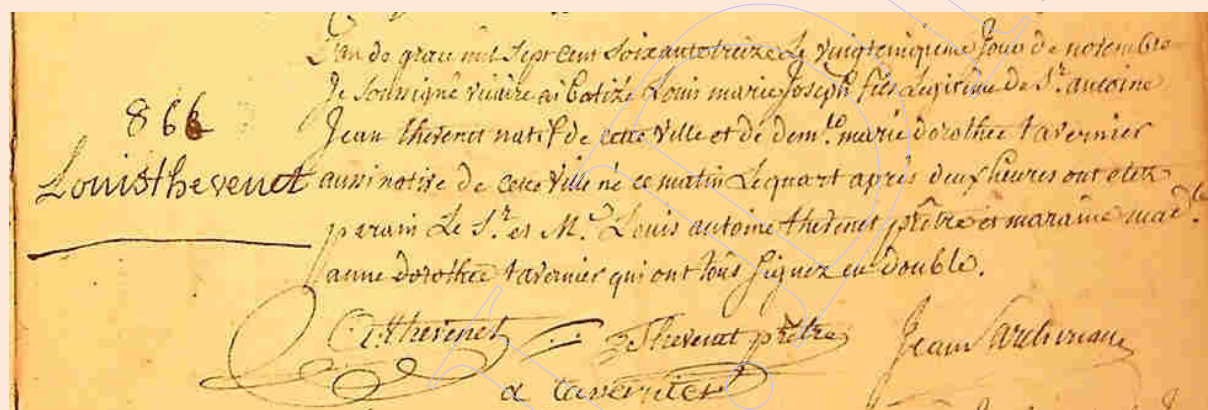 L'an de grace mil sept cent soixante treize le vingtcinqieme jour de novembre
Je soussigné vicaire ai batizé Louis marie Joseph fils Legitime de Sr. antoine
866
Jean thevenet natif de cette ville et de demlle marie dorothée tavernier
Louis thevenet
aussi native de cette ville né ce matin Le quart après deux heures ont etez
parain Le Sr. et Me. Louis antoine thevenet prêtre et maraine madlle.
anne dorothée tavernier qui ont tous signez en double.
thevenet Thevenet prêtre Jean
a tavernier